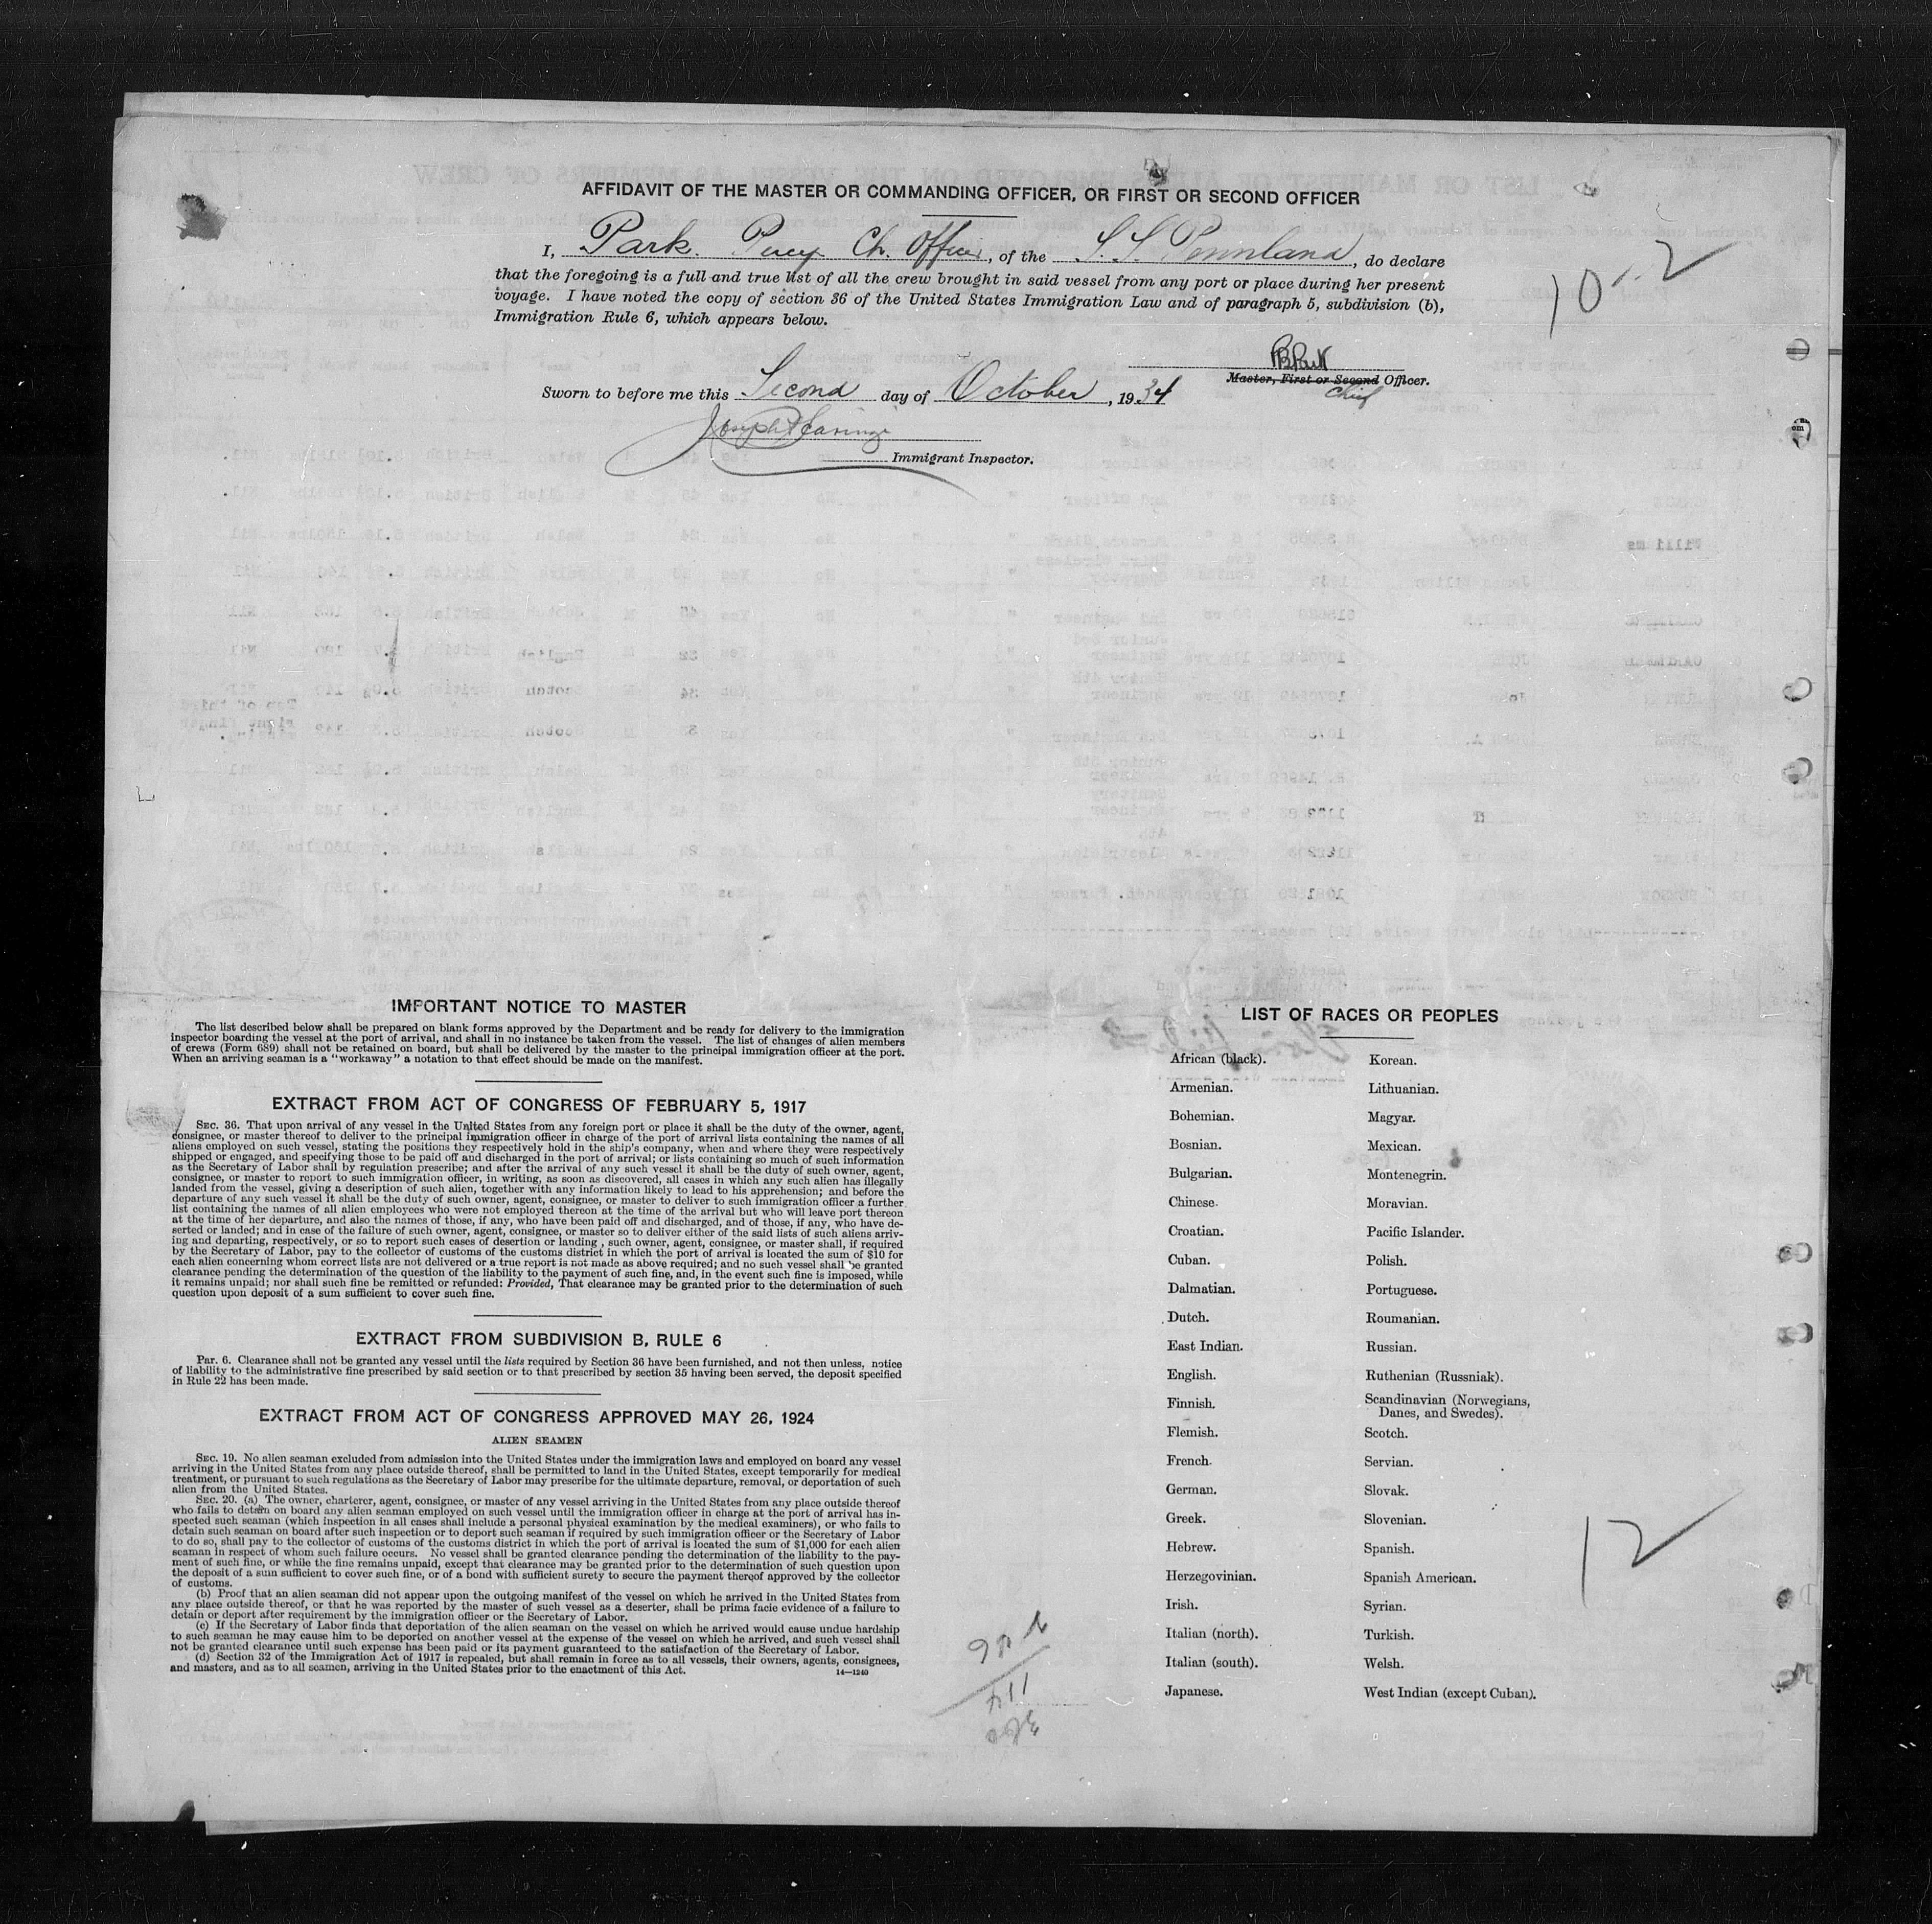 AFFIDAVIT OF THE MASTER OR COMMANDING OFFICER, OR FIRST OR SECOND OFFICER
I, Park. Percy Ch. Officer, of the S.S. Pennland, do declare
that the foregoing is a full and true list of all the crew brought in said vessel from any port or place during her present
voyage. I have noted the copy of section 36 of the United States Immigration Law and of paragraph 5, subdivision (b),
Immigration Rule 6, which appears below.
10-2
Master, First or Second Officer.
Chief
Sworn to before me this Second day of October, 1934
Immigrant Inspector.
IMPORTANT NOTICE TO MASTER
The list described below shall be prepared on blank forms approved by the Department and be ready for delivery to the immigration
inspector boarding the vessel at the port of arrival, and shall in no instance be taken from the vessel. The list of changes of alien members
of crews (Form 689) shall not be retained on board, but shall be delivered by the master to the principal immigration officer at the port.
When an arriving seaman is a "workaway" a notation to that effect should be made on the manifest.
EXTRACT FROM ACT OF CONGRESS OF FEBRUARY 5, 1917
SEC. 36. That upon arrival of any vessel in the United States from any foreign port or place it shall be the duty of the owner, agent,
consignee, or master thereof to deliver to the principal immigration officer in charge of the port of arrival lists containing the names of all
aliens employed on such vessel, stating the positions they respectively hold in the ship's company, when and where they were respectively
shipped or engaged, and specifying those to be paid off and discharged in the port of arrival; or lists containing so much of such information
as the Secretary of Labor shall by regulation prescribe; and after the arrival of any such vessel it shall be the duty of such owner, agent,
consignee, or master to report to such immigration officer, in writing, as soon as discovered, all cases in which any such alien has illegally
landed from the vessel, giving a description of such alien, together with any information likely to lead to his apprehension; and before the
departure of any such vessel it shall be the duty of such owner, agent, consignee, or master to deliver to such immigration officer a further
list containing the names of all alien employees who were not employed thereon at the time of the arrival but who will leave port thereon
at the time of her departure, and also the names of those, if any, who have been paid off and discharged, and of those, if any, who have de-
serted or landed; and in case of the failure of such owner, agent, consignee, or master so to deliver either of the said lists of such aliens arriv-
ing and departing, respectively, or so to report such cases of desertion or landing, such owner, agent, consignee, or master shall, if required
by the Secretary of Labor, pay to the collector of customs of the customs district in which the port of arrival is located the sum of $10 for
each alien concerning whom correct lists are not delivered or a true report is not made as above required; and no such vessel shall be granted
clearance pending the determination of the question of the liability to the payment of such fine, and, in the event such fine is imposed, while
it remains unpaid; nor shall such fine be remitted or refunded: Provided, That clearance may be granted prior to the determination of such
question upon deposit of a sum sufficient to cover such fine.
EXTRACT FROM SUBDIVISION B, RULE 6
Par. 6. Clearance shall not be granted any vessel until the lists required by Section 36 have been furnished, and not then unless, notice
of liability to the administrative fine prescribed by said section or to that prescribed by section 35 having been served, the deposit specified
in Rule 22 has been made.
EXTRACT FROM ACT OF CONGRESS APPROVED MAY 26, 1924
ALIEN SEAMEN
SEC. 19. No alien seaman excluded from admission into the United States under the immigration laws and employed on board any vessel
arriving in the United States from any place outside thereof, shall be permitted to land in the United States, except temporarily for medical
treatment, or pursuant to such regulations as the Secretary of Labor may prescribe for the ultimate departure, removal, or deportation of such
alien from the United States.
SEC. 20. (a) The owner, charterer, agent, consignee, or master of any vessel arriving in the United States from any place outside thereof
who fails to detain on board any alien seaman employed on such vessel until the immigration officer in charge at the port of arrival has in-
spected such seaman (which inspection in all cases shall include a personal physical examination by the medical examiners), or who fails to
detain such seaman on board after such inspection or to deport such seaman if required by such immigration officer or the Secretary of Labor
to do so, shall pay to the collector of customs of the customs district in which the port of arrival is located the sum of $1,000 for each alien
seaman in respect of whom such failure occurs. No vessel shall be granted clearance pending the determination of the liability to the pay-
ment of such fine, or while the fine remains unpaid, except that clearance may be granted prior to the determination of such question upon
the deposit of a sum sufficient to cover such fine, or of a bond with sufficient surety to secure the payment thereof approved by the collector
of customs.
(b) Proof that an alien seaman did not appear upon the outgoing manifest of the vessel on which he arrived in the United States from
any place outside thereof, or that he was reported by the master of such vessel as a deserter, shall be prima facie evidence of a failure to
detain or deport after requirement by the immigration officer or the Secretary of Labor.
(c) If the Secretary of Labor finds that deportation of the alien seaman on the vessel on which he arrived would cause undue hardship
to such seaman he may cause him to be deported on another vessel at the expense of the vessel on which he arrived, and such vessel shall
not be granted clearance until such expense has been paid or its payment guaranteed to the satisfaction of the Secretary of Labor.
(d) Section 32 of the Immigration Act of 1917 is repealed, but shall remain in force as to all vessels, their owners, agents, consignees,
and masters, and as to all seamen, arriving in the United States prior to the enactment of this Act.
14—1240
LIST OF RACES OR PEOPLES
African (black).
Armenian.
Bohemian.
Bosnian.
Bulgarian.
Chinese.
Croatian.
Cuban.
Dalmatian.
Dutch.
East Indian.
English.
Finnish.
Flemish.
French.
German.
Greek.
Hebrew.
Herzegovinian.
Irish.
Italian (north).
Italian (south).
Japanese.
Korean.
Lithuanian.
Magyar.
Mexican.
Montenegrin.
Moravian.
Pacific Islander.
Polish.
Portuguese.
Roumanian.
Russian.
Ruthenian (Russniak).
Scandinavian (Norwegians,
Danes, and Swedes).
Scotch.
Servian.
Slovak.
Slovenian.
Spanish.
Spanish American.
Syrian.
Turkish.
Welsh.
West Indian (except Cuban).
12